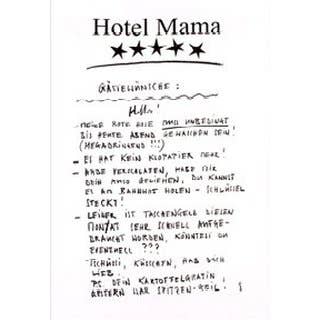 Hotel Mama
GÄSTEWÜNSCHE:
Hallo!
- MEINE ROTE HOSE MUSS UNBEDINGT
BIS HEUTE ABEND GEWASCHEN SEIN!
(MEGADRINGEND!!!)
- ES HAT KEIN KLOPAPIER MEHR!
- HABE VERSCHLAFEN, HABE MIR
DEIN AUTO GELIEHEN, DU KANNST
ES AM BAHNHOF HOLEN - SCHLÜSSEL
STECKT!
- LEIDER IST TASCHENGELD DIESEN
MONAT SEHR SCHNELL AUFGE-
BRAUCHT WORDEN, KÖNNTEST DU
EVENTUELL ???
TSCHÜSSI, KÜSSCHEN, HAB DICH
LIEB!
PS DEIN KARTOFFELGRATIN
GESTERN WAR SPITZEN-GEIL!